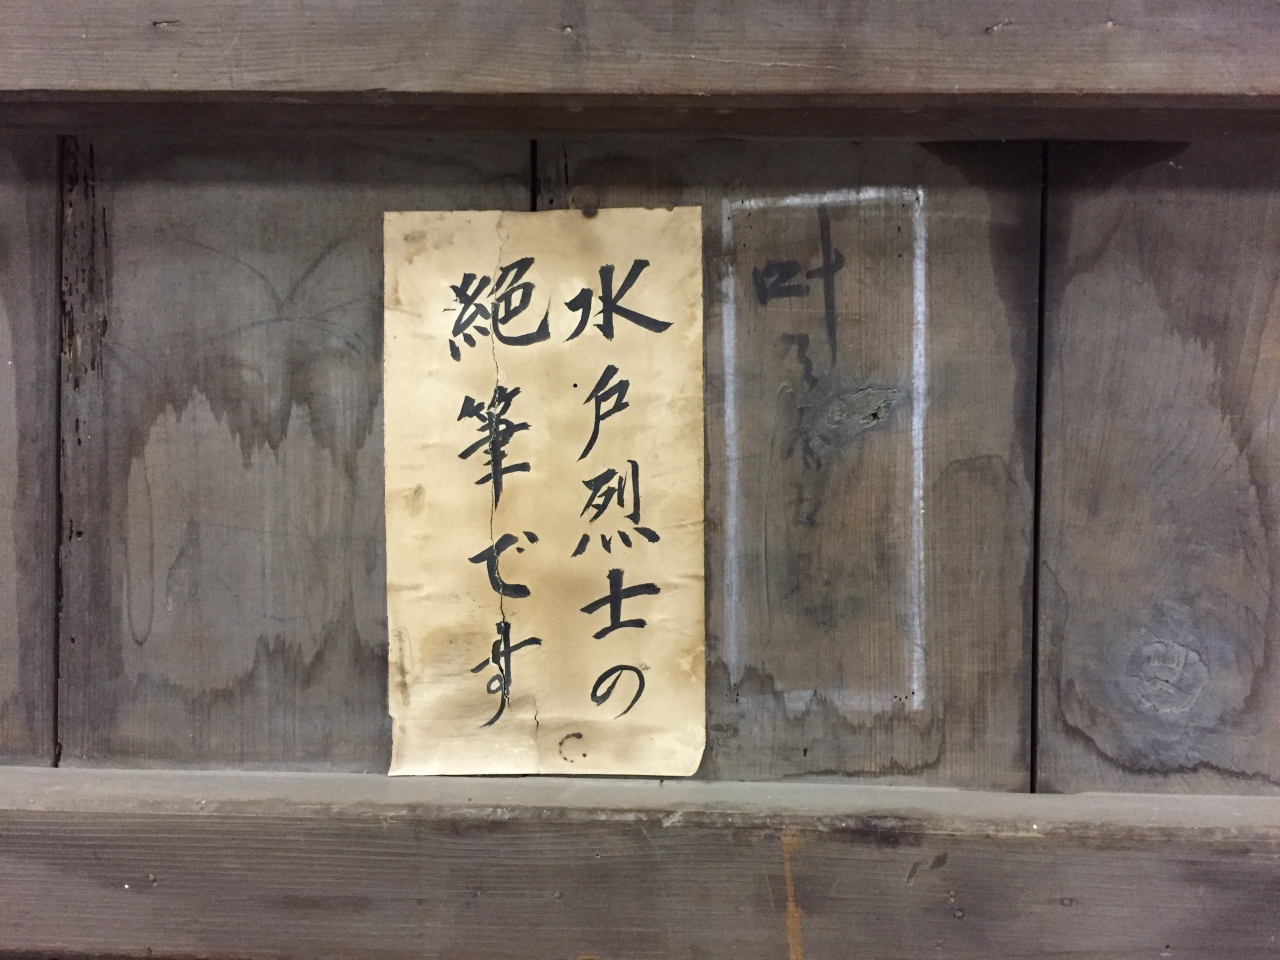 水戸烈士の
絶筆です
叶